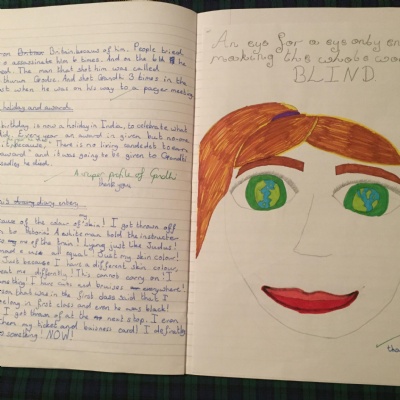 Britain because of him. People tried
assassinate him 6 times. And on the 6th he
The man that shot him was called
Godse. And shot Gandhi 3 times in the
when he was on his way to a prayer meeting.
holiday and awards.
birthday is now a holiday in India, to celebrate what
Every year an award is given but no-one
There is no living candidate to earn
award" and it was going to be given to Grandhi
he died.
A super profile of Gandhi
thank you.
diary entry
of the colour of my skin! I got thrown off
to Pretoria! A white man told the instructor
me of the train! Lying just like Judas!
all equal! Just my skin colour!
Just because I have a different skin colour,
me, differently! This cannot carry on! I
something! I have cuts and bruises everywhere!
person that was in the first class said that I
belong in first class and even he was black!
I got thrown of at the next stop. I even
them my ticket and buisness card! I definitely
something! NOW!
"An eye for a eye only en
making the whole wo
BLIND